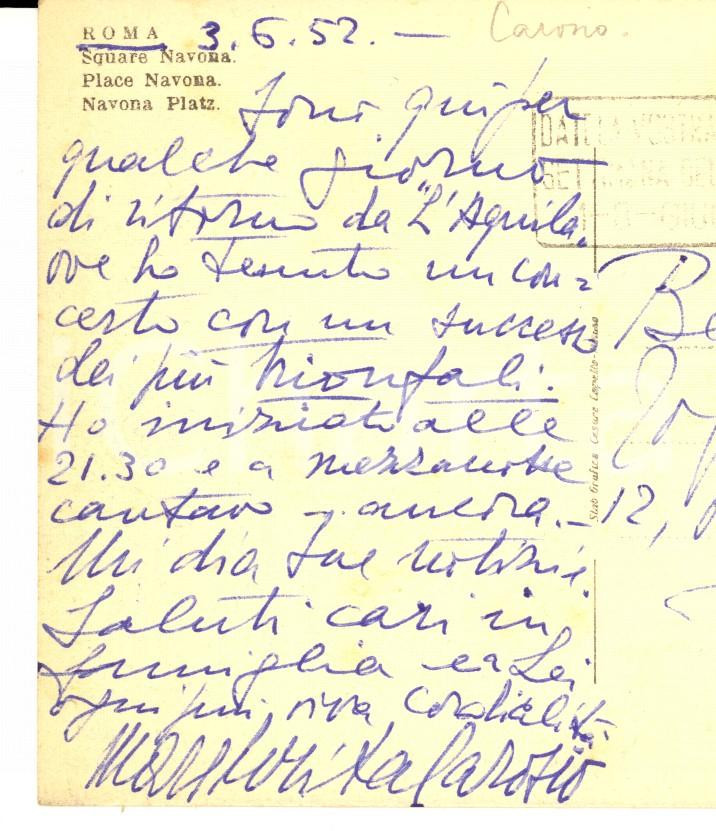 Carosio.
ROMA 3.6.52. —
Square Navona.
Place Navona.
Navona Platz.
Sono qui per
qualche giorno
di ritorno da "L'Aquila"
ove ho tenuto un con=
certo con un successo
dei più trionfali.
Ho iniziato alle
21.30 e a mezzanotte
cantavo ancora. —
Mi dia sue notizie.
Saluti cari in
famiglia e a Lei
ogni più viva cordialità
Margherita Carosio
12,